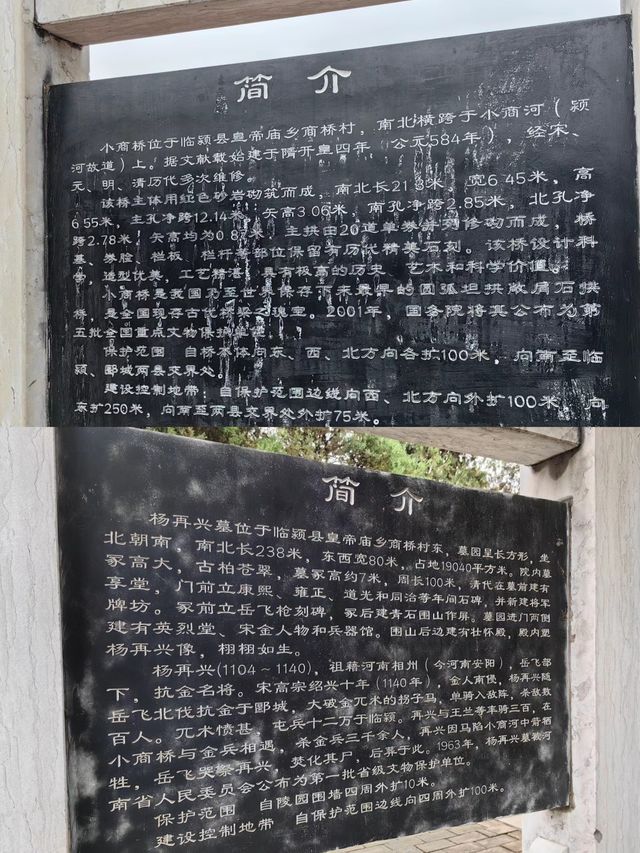 简介
小商桥位于临颍县皇帝庙乡商桥村，南北横跨于小商河（颍
河故道）上。据文献载始建于隋开皇四年（公元584年），经宋、
元、明、清历代多次维修。
该桥主体用红色砂岩砌筑而成，南北长21.3米，宽6.45米，高
6.55米，主孔净跨12.14米，矢高3.06米，南孔净跨2.85米，北孔净
跨2.78米，矢高均为0.8米，主拱由20道单券并列修砌而成，桥
墓、券脸、栏板、栏杆等部位保留有历代精美石刻。该桥设计科
学，造型优美，工艺精湛，具有极高的历史、艺术和科学价值。
小商桥是我国乃至世界保存下来最早的圆弧坦拱敞肩石拱
桥，是全国现存古代桥梁之瑰宝。2001年，国务院将其公布为第
五批全国重点文物保护单位。
保护范围　自桥本体向东、西、北方向各扩100米，向南至临
颍、郾城两县交界处。
建设控制地带：自保护范围边线向西、北方向外扩100米，向
东扩250米，向南至两县交界处外扩75米。
简介
杨再兴墓位于临颍县皇帝庙乡商桥村东，墓园呈长方形，坐
北朝南，南北长238米，东西宽80米，占地19040平方米。院内墓
冢高大，古柏苍翠，墓冢高约7米，周长100米，清代在墓前建有
享堂，门前立康熙、雍正、道光和同治等年间石碑，并新建将军
牌坊。冢前立岳飞枪刻碑，冢后建青石围山作屏。墓园进门两侧
建有英烈堂、宋金人物和兵器馆。围山后边建有壮怀殿，殿内塑
杨再兴像，栩栩如生。
杨再兴(1104～1140)，祖籍河南相州（今河南安阳），岳飞部
下，抗金名将。宋高宗绍兴十年（1140年），金人南侵，杨再兴随
岳飞北伐抗金于郾城，大破金兀术的拐子马，单骑入敌阵，杀敌数
百人。兀术愤甚，屯兵十二万于临颍。再兴与王兰等率骑三百，在
小商桥与金兵相遇，杀金兵三千余人，再兴因马陷小商河中背牺
牲，岳飞哭祭再兴，焚化其尸，后葬于此。1963年，杨再兴墓被河
南省人民委员会公布为第一批省级文物保护单位。
保护范围　自陵园围墙四周外扩10米。
建设控制地带　自保护范围边线向四周外扩100米。